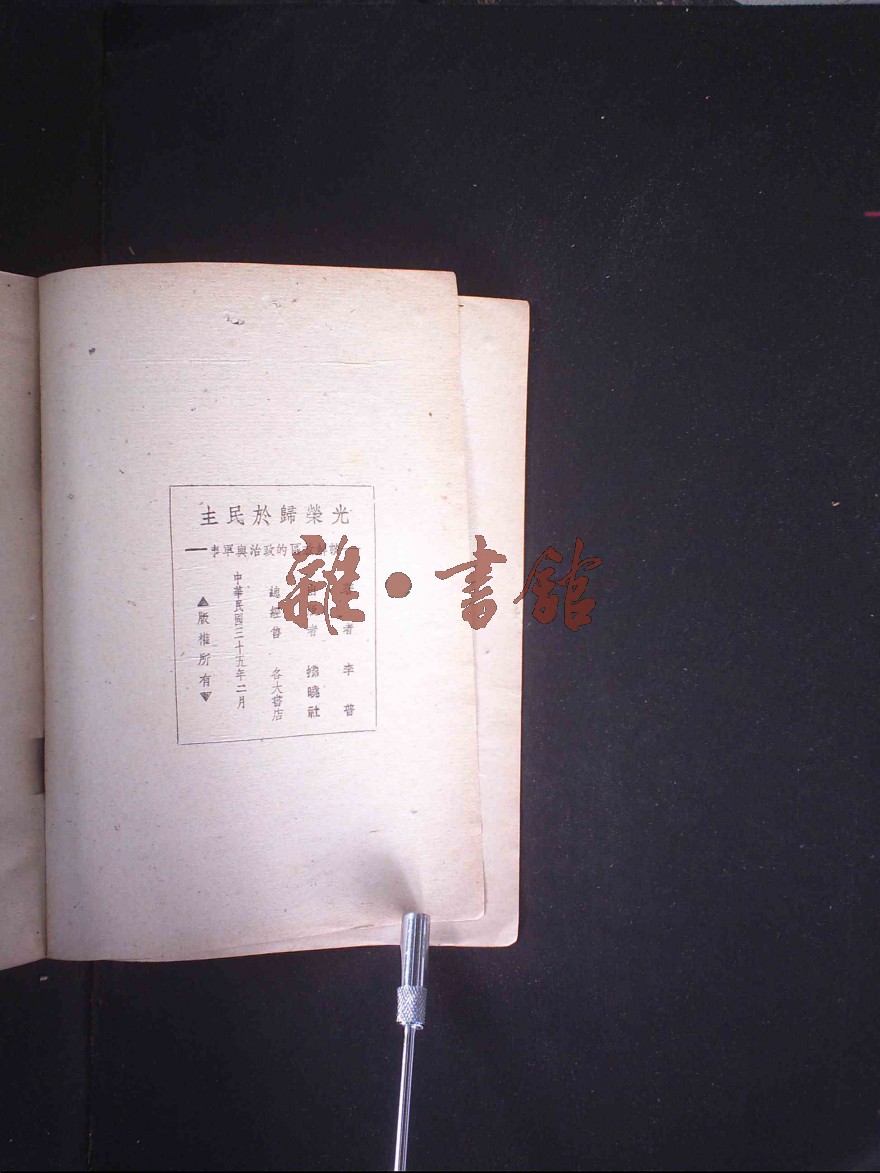 光榮歸於民主
區的政治與軍事
李普
社
總經售 各大書店
中華民國三十五年二月
▲版權所有▼
雜·書館